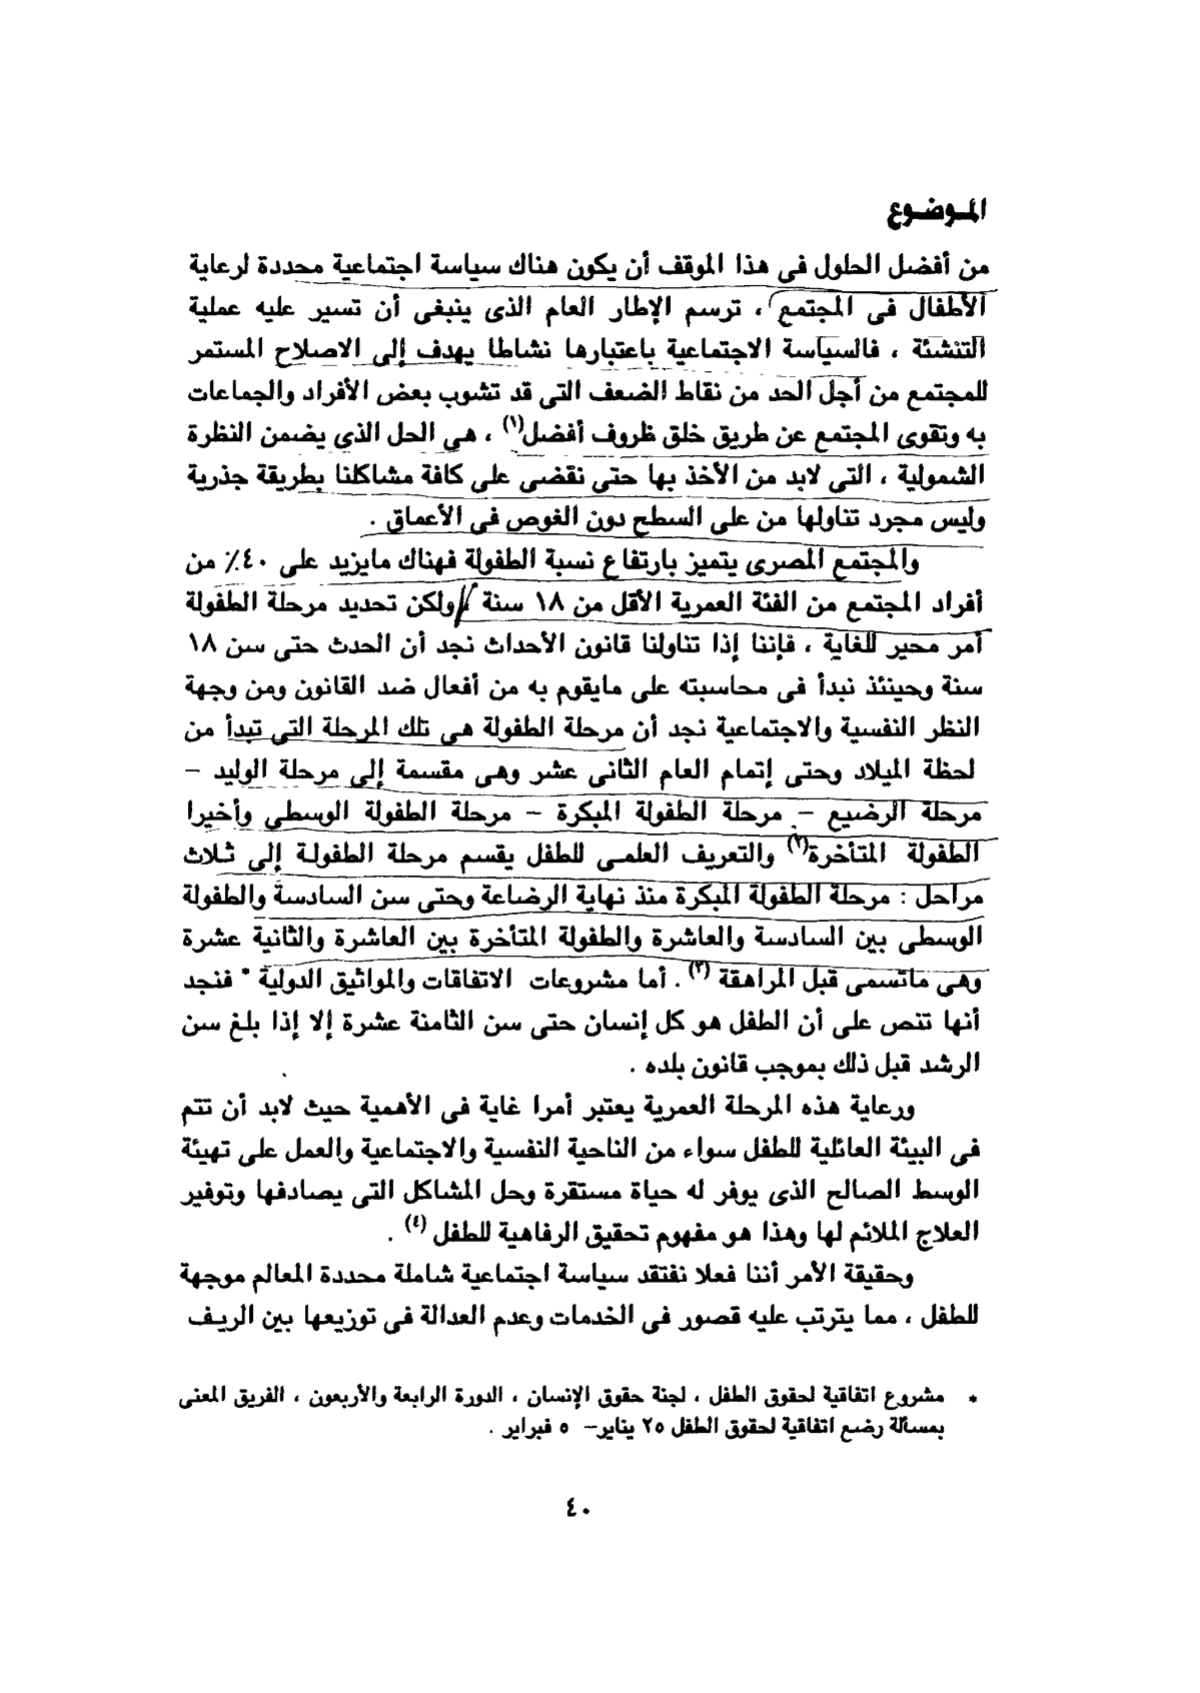 الموضوع
من أفضل الحلول فى هذا الموقف أن يكون هناك سياسة اجتماعية محددة لرعاية
الأطفال فى المجتمع ، ترسم الإطار العام الذى ينبغى أن تسير عليه عملية
التنشئة ، فالسياسة الاجتماعية باعتبارها نشاطا يهدف إلى الاصلاح المستمر
للمجتمع من أجل الحد من نقاط الضعف التى قد تشوب بعض الأفراد والجماعات
به وتقوى المجتمع عن طريق خلق ظروف أفضل(١) ، هى الحل الذى يضمن النظرة
الشمولية ، التى لابد من الأخذ بها حتى نقضى على كافة مشاكلنا بطريقة جذرية
وليس مجرد تناولها من على السطح دون الغوص فى الأعماق .
والمجتمع المصرى يتميز بارتفاع نسبة الطفولة فهناك مايزيد على ٤٠٪ من
أفراد المجتمع من الفئة العمرية الأقل من ١٨ سنة ، ولكن تحديد مرحلة الطفولة
أمر محير للغاية ، فإننا إذا تناولنا قانون الأحداث نجد أن الحدث حتى سن ١٨
سنة وحينئذ نبدأ فى محاسبته على مايقوم به من أفعال ضد القانون ومن وجهة
النظر النفسية والاجتماعية نجد أن مرحلة الطفولة هى تلك المرحلة التى تبدأ من
لحظة الميلاد وحتى إتمام العام الثانى عشر وهى مقسمة إلى مرحلة الوليد –
مرحلة الرضيع – مرحلة الطفولة المبكرة – مرحلة الطفولة الوسطى وأخيرا
الطفولة المتأخرة(٢) والتعريف العلمى للطفل يقسم مرحلة الطفولة إلى ثلاث
مراحل : مرحلة الطفولة المبكرة منذ نهاية الرضاعة وحتى سن السادسة والطفولة
الوسطى بين السادسة والعاشرة والطفولة المتأخرة بين العاشرة والثانية عشرة
وهى ماتسمى قبل المراهقة (٣) . أما مشروعات الاتفاقات والمواثيق الدولية * فنجد
أنها تنص على أن الطفل هو كل إنسان حتى سن الثامنة عشرة إلا إذا بلغ سن
الرشد قبل ذلك بموجب قانون بلده .
ورعاية هذه المرحلة العمرية يعتبر أمرا غاية فى الأهمية حيث لابد أن تتم
فى البيئة العائلية للطفل سواء من الناحية النفسية والاجتماعية والعمل على تهيئة
الوسط الصالح الذى يوفر له حياة مستقرة وحل المشاكل التى يصادفها وتوفير
العلاج الملائم لها وهذا هو مفهوم تحقيق الرفاهية للطفل (٤) .
وحقيقة الأمر أننا فعلا نفتقد سياسة اجتماعية شاملة محددة المعالم موجهة
للطفل ، مما يترتب عليه قصور فى الخدمات وعدم العدالة فى توزيعها بين الريف
* مشروع اتفاقية لحقوق الطفل ، لجنة حقوق الإنسان ، الدورة الرابعة والأربعون ، الفريق المعنى
بمسألة رضع اتفاقية لحقوق الطفل ٢٥ يناير– ٥ فبراير .
٤٠